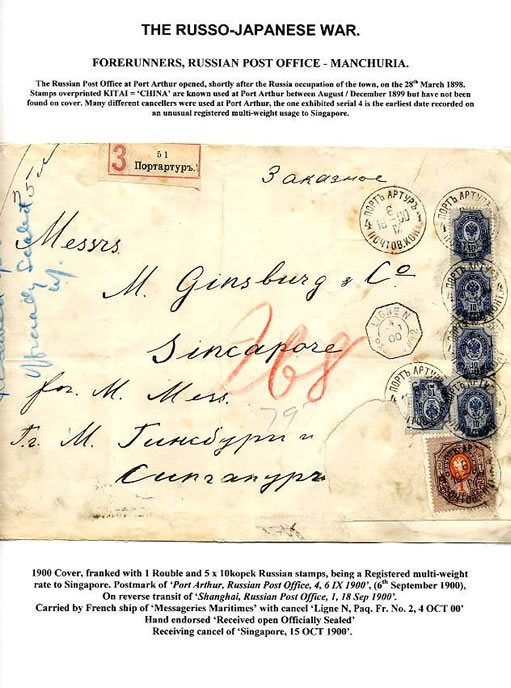 THE RUSSO-JAPANESE WAR.
FORERUNNERS, RUSSIAN POST OFFICE - MANCHURIA.
The Russian Post Office at Port Arthur opened, shortly after the Russia occupation of the town, on the 28th March 1898.
Stamps overprinted KITAI = 'CHINA' are known used at Port Arthur between August / December 1899 but have not been
found on cover. Many different cancellers were used at Port Arthur, the one exhibited serial 4 is the earliest date recorded on
an unusual registered multi-weight usage to Singapore.
З 51
Портартуръ.
Заказное
ПОРТЪ АРТУРЪ
6
IX
ПОЧТОВ.КОН.
Messrs.
M. Ginsburg & Co
LIGNE N
4
00
Sincapore
268
for M. Mess.
79
Гг. М. Гинсбургъ и
Сингапуръ
Officially Sealed
10
1900 Cover, franked with 1 Rouble and 5 x 10kopek Russian stamps, being a Registered multi-weight
rate to Singapore. Postmark of 'Port Arthur, Russian Post Office, 4, 6 IX 1900', (6th September 1900),
On reverse transit of 'Shanghai, Russian Post Office, 1, 18 Sep 1900'.
Carried by French ship of 'Messageries Maritimes' with cancel 'Ligne N, Paq. Fr. No. 2, 4 OCT 00'
Hand endorsed 'Received open Officially Sealed'
Receiving cancel of 'Singapore, 15 OCT 1900'.